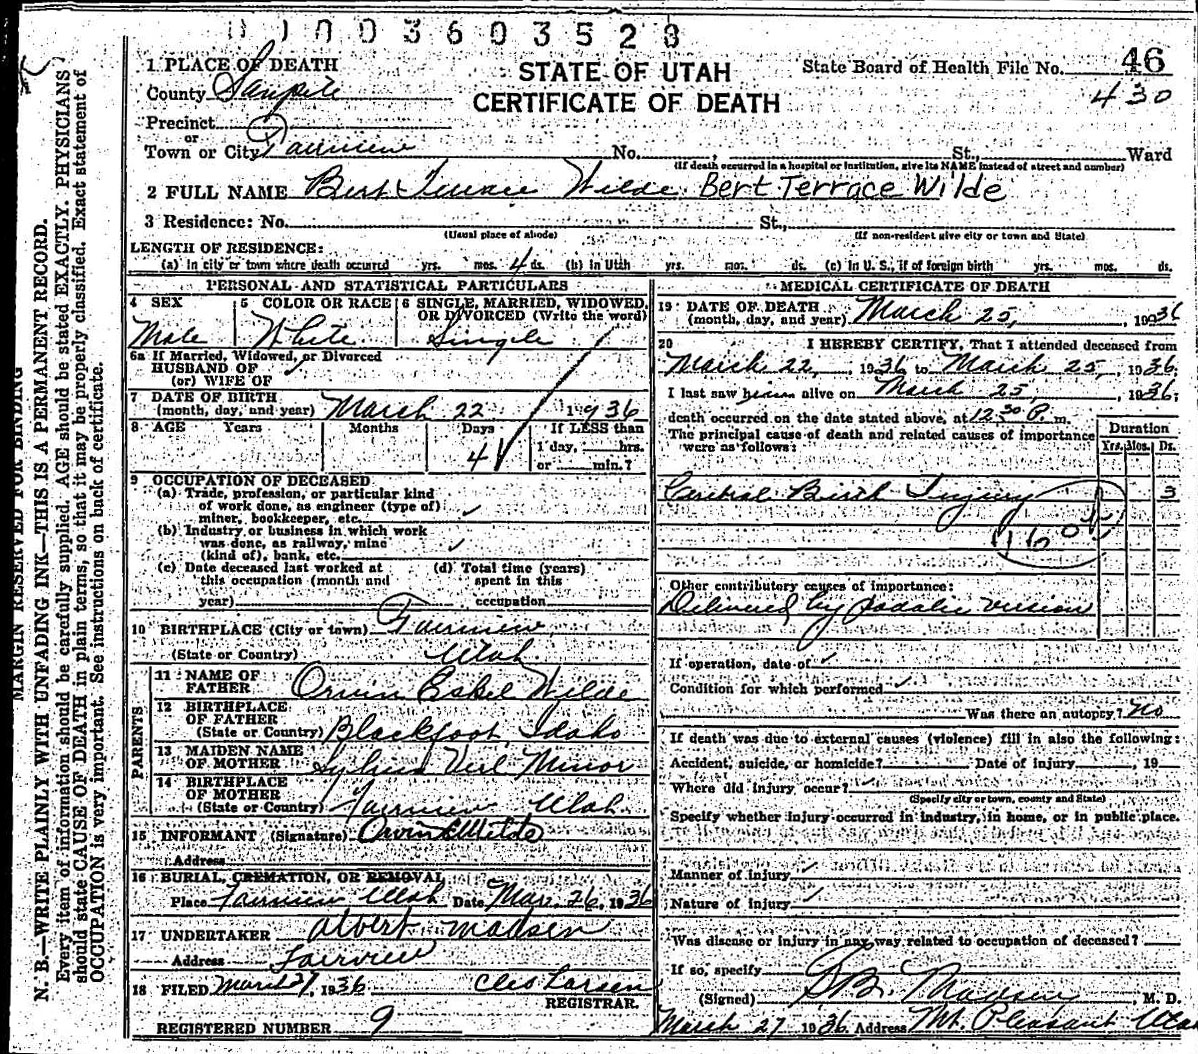 1003603528
1 PLACE OF DEATH
County Sanpete
Precinct
or
Town or City Fairview No. , St., Ward
(If death occurred in a hospital or institution, give its NAME instead of street and number)
STATE OF UTAH
CERTIFICATE OF DEATH
State Board of Health File No. 46
430
2 FULL NAME Bert Terrace Wilde Bert Terrace Wilde
3 Residence: No. St.,
(Usual place of abode) (If non-resident give city or town and State)
LENGTH OF RESIDENCE:
(a) in city or town where death occurred yrs. mos. 4 ds. (b) in Utah yrs. mos. ds. (c) in U. S., if of foreign birth yrs. mos. ds.
PERSONAL AND STATISTICAL PARTICULARS
4 SEX 5 COLOR OR RACE 6 SINGLE, MARRIED, WIDOWED, OR DIVORCED (Write the word)
Male White Single
6a If Married, Widowed, or Divorced
HUSBAND OF
(or) WIFE OF
7 DATE OF BIRTH
(month, day, and year) March 22 1936
8 AGE Years Months Days If LESS than
4 1 day, hrs.
or min.?
9 OCCUPATION OF DECEASED
(a) Trade, profession, or particular kind
of work done, as engineer (type of)
miner, bookkeeper, etc.
(b) Industry or business in which work
was done, as railway, mine
(kind of), bank, etc.
(c) Date deceased last worked at (d) Total time (years)
this occupation (month and spent in this
year) occupation
10 BIRTHPLACE (City or town) Fairview
(State or Country) Utah
PARENTS
11 NAME OF
FATHER Orvin Eskel Wilde
12 BIRTHPLACE
OF FATHER
(State or Country) Blackfoot, Idaho
13 MAIDEN NAME
OF MOTHER Verl Minor
14 BIRTHPLACE
OF MOTHER
(State or Country) Fairview Utah
15 INFORMANT (Signature) Orvin E Wilde
Address
16 BURIAL, CREMATION, OR REMOVAL
Place Fairview Utah Date Mar. 26, 1936
17 UNDERTAKER Albert Madsen
Address Fairview
18 FILED March 27, 1936 Cleo Larsen
REGISTRAR.
REGISTERED NUMBER 9
MEDICAL CERTIFICATE OF DEATH
19 DATE OF DEATH
(month, day, and year) March 25, , 1936
20 I HEREBY CERTIFY, That I attended deceased from
March 22, , 1936 to March 25, , 1936;
I last saw alive on March 25, , 1936;
death occurred on the date stated above, at 12 30 P. m.
The principal cause of death and related causes of importance
were as follows:
Duration
Yrs. Mos. Ds.
Cerebral Birth Injury 3
160
Other contributory causes of importance:
Delivered by podalic version
If operation, date of
Condition for which performed
Was there an autopsy? no
If death was due to external causes (violence) fill in also the following:
Accident, suicide, or homicide? Date of injury , 19
Where did injury occur?
(Specify city or town, county and State)
Specify whether injury occurred in industry, in home, or in public place.
Manner of injury
Nature of injury
Was disease or injury in any way related to occupation of deceased?
If so, specify
(Signed) Madsen , M. D.
March 27 1936 Address Mt. Pleasant Utah
MARGIN RESERVED FOR BINDING
N. B.—WRITE PLAINLY WITH UNFADING INK—THIS IS A PERMANENT RECORD.
Every item of information should be carefully supplied. AGE should be stated EXACTLY. PHYSICIANS
should state CAUSE OF DEATH in plain terms, so that it may be properly classified. Exact statement of
OCCUPATION is very important. See instructions on back of certificate.